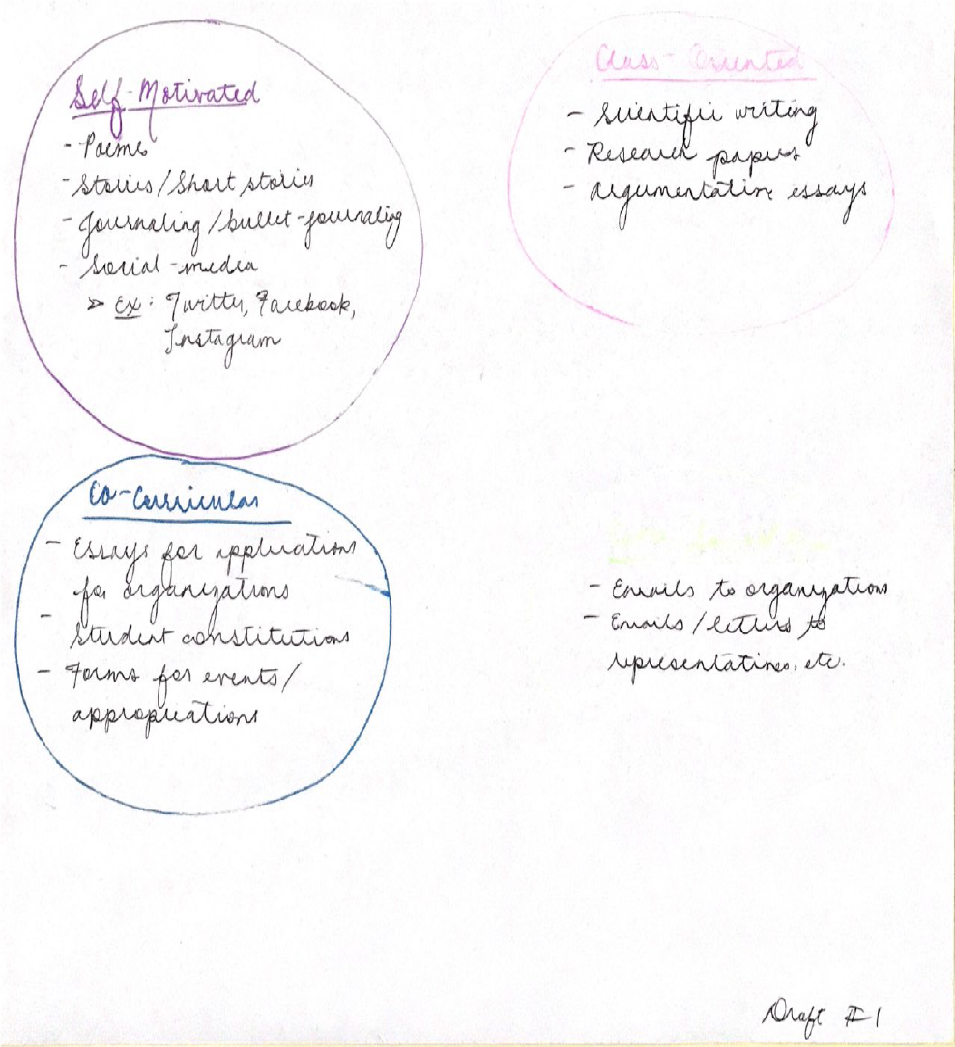 Self-Motivated
- Poems
- Stories/Short stories
- Journaling/bullet-journaling
- Social-media
> Ex: Twitter, Facebook,
Instagram
Class-Oriented
- Scientific writing
- Research papers
- Argumentative essays
Co-Curricular
- Essays for applications
for organizations
- Student constitutions
- Forms for events/
appropriations
- Emails to organizations
- Emails/letters to
representatives, etc.
Draft #1